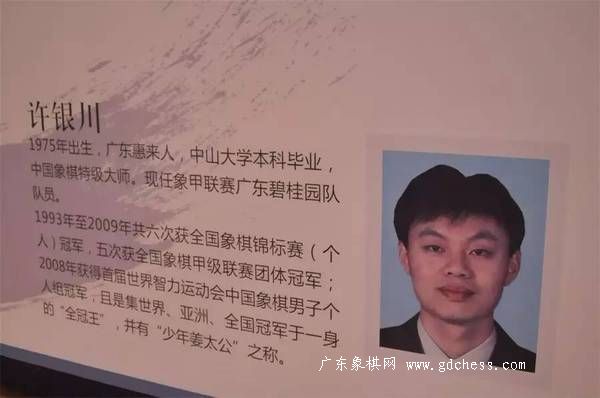 许银川
1975年出生，广东惠来人，中山大学本科毕业，
中国象棋特级大师。现任象甲联赛广东碧桂园队
队员。
1993年至2009年共六次获全国象棋锦标赛（个
人）冠军，五次获全国象棋甲级联赛团体冠军；
2008年获得首届世界智力运动会中国象棋男子个
人组冠军，且是集世界、亚洲、全国冠军于一身
的“全冠王”，并有“少年姜太公”之称。
广东象棋网 www.gdchess.com